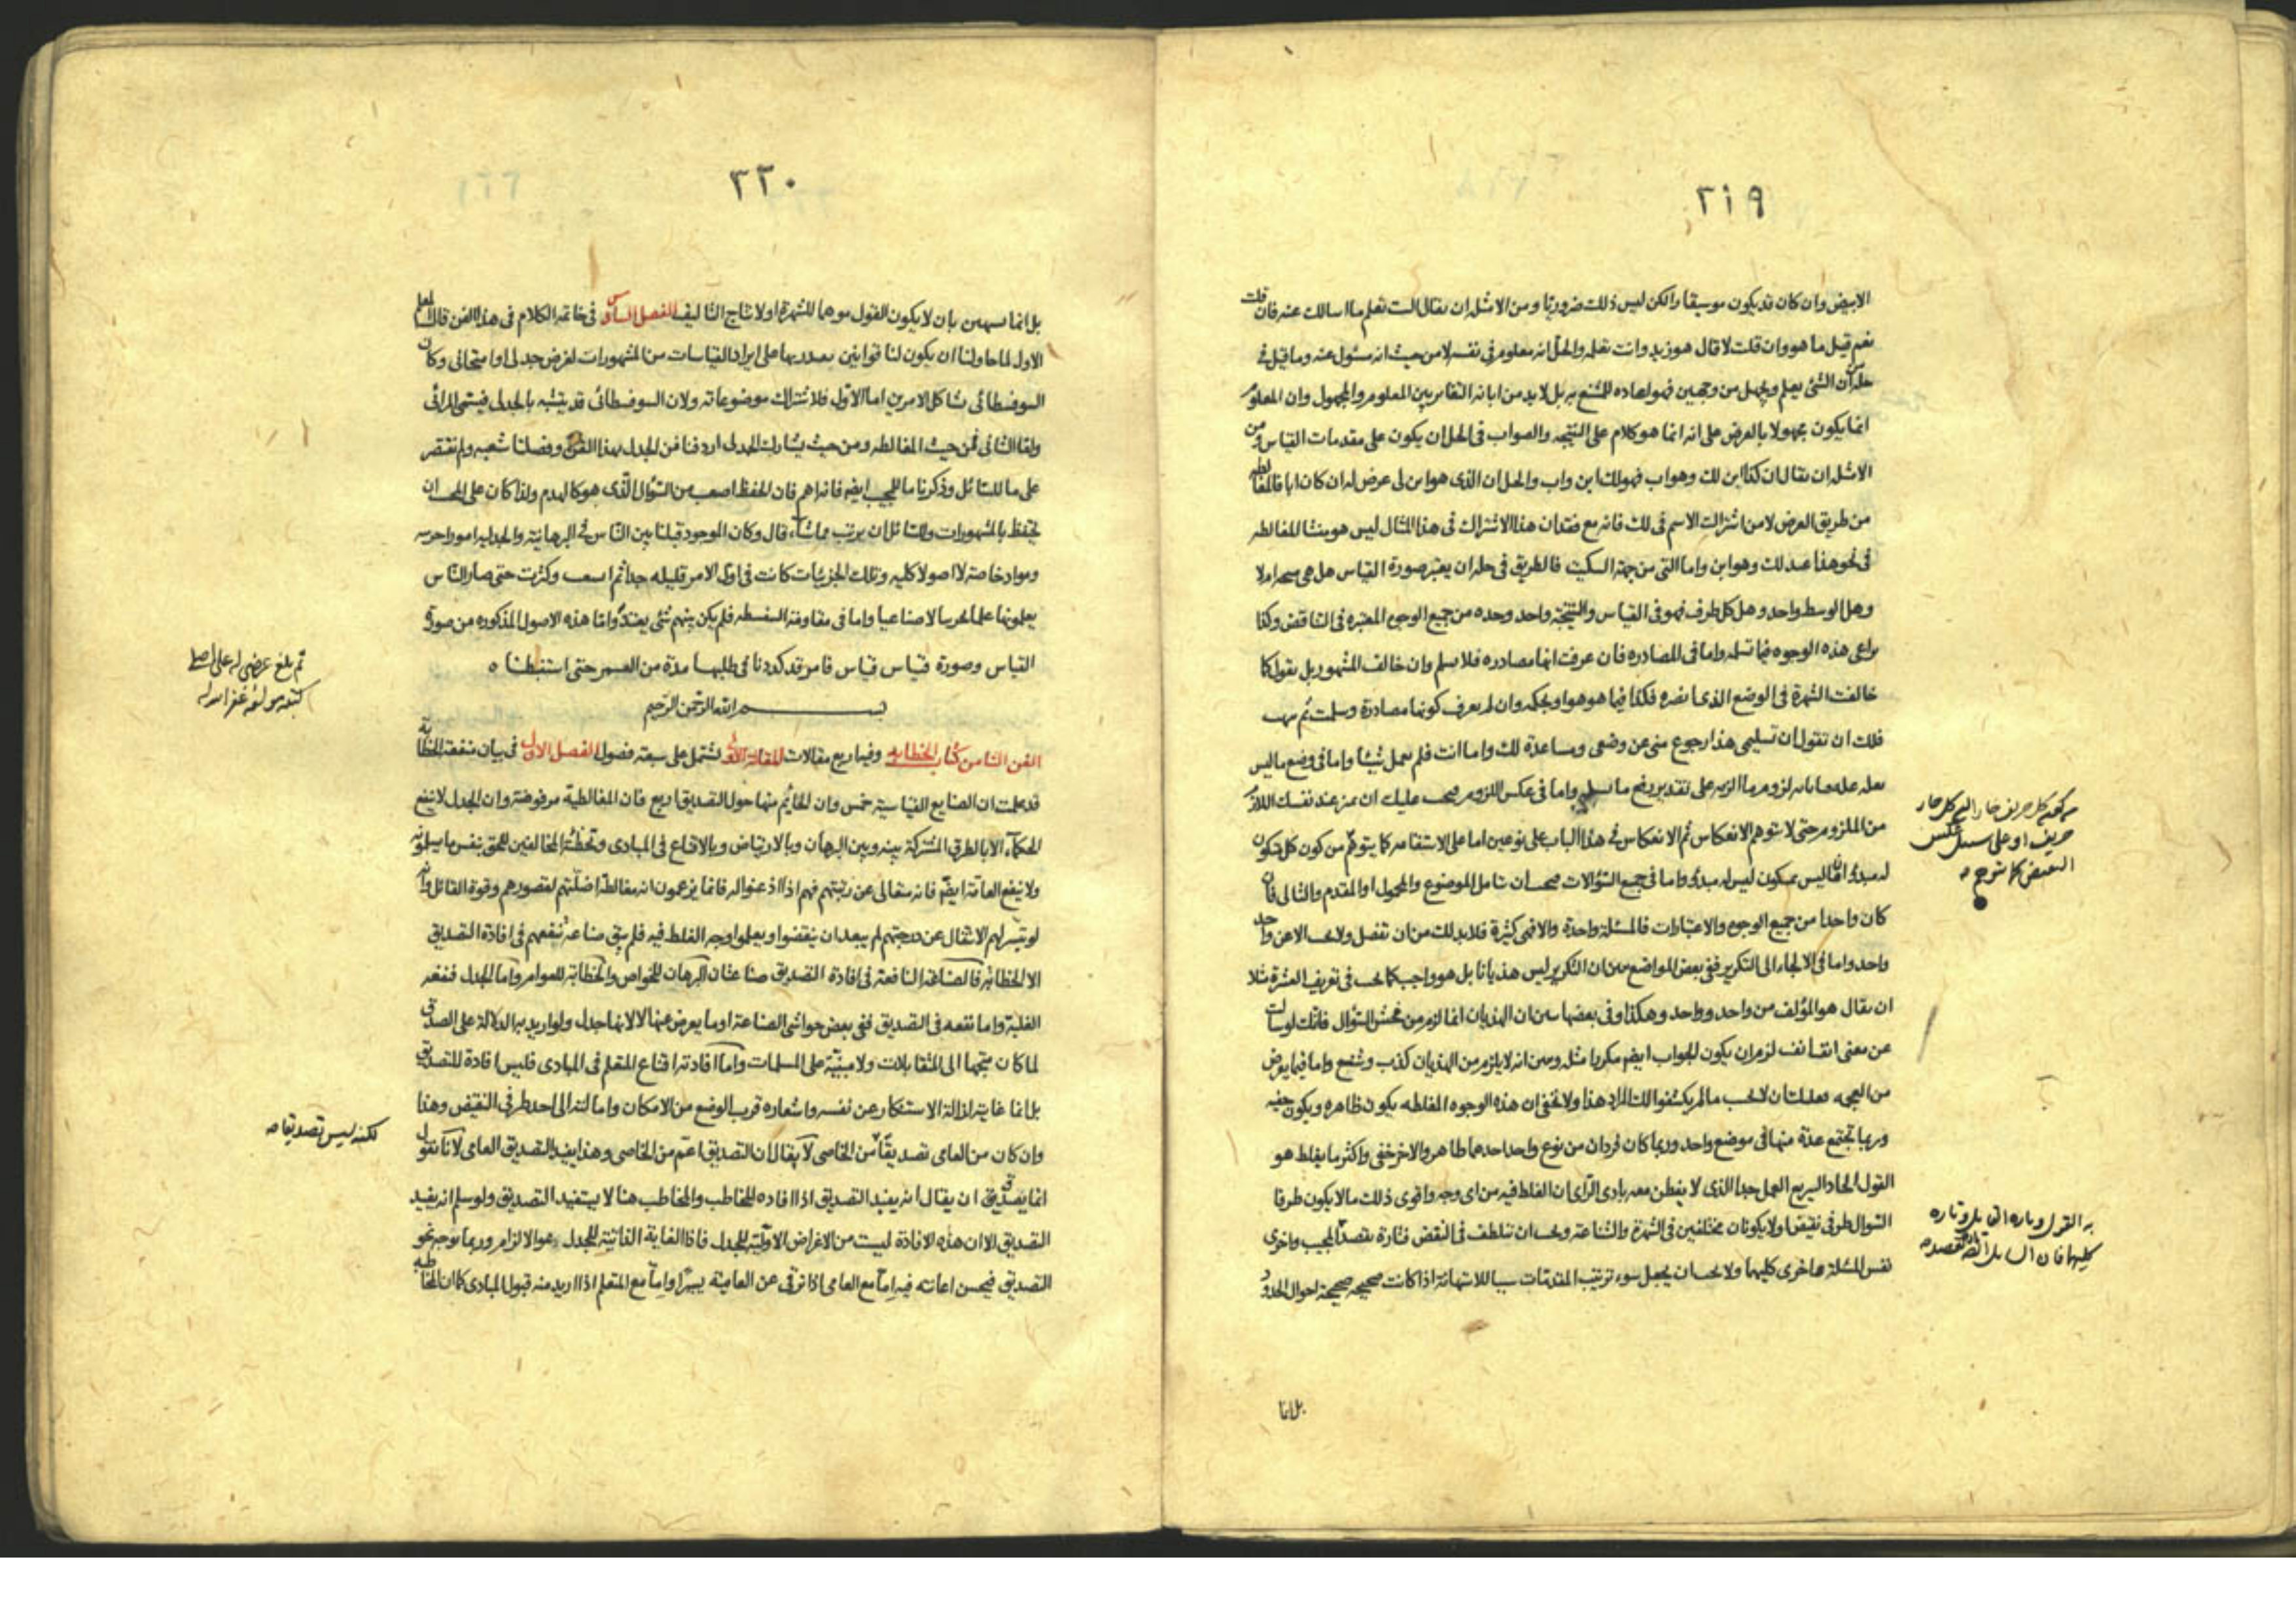 ٢١٩
الابيض وان كان قد يكون موسيقارا لكن ليس ذلك ضروريا ومن الامثلة ان يقال الست تعلم ما اسالك عنه فان قلت
نعم قيل ما هو وان قلت لا قال هو زيد وانت تعلمه والحل انه معلوم في نفسه لا من حيث انه مسئول عنه وما قيل في
حله من ان الشئ يعلم ويجهل من وجهين فهو اعاده للشنع به بل لا بد من ابانه التغاير بين المعلوم والمجهول وان المعلوم
انما يكون مجهولا بالعرض على انه انما هو كلام على النتيجه والصواب في الحل ان يكون على مقدمات القياس ومن
الامثلة ان يقال ان كذا ابن لك وهو اب فهو لك ابن واب والحل ان الذى هو ابن لى عرض له ان كان ابا فالمغالطه
من طريق العرض لا من اشتراك الاسم في لك فانه مع فقدان هذا الاشتراك في هذا المثال ليس هو منشا للمغالطه
في نحو هذا عبد لك وهو ابن واما التى من جهة السكيت فالطريق في حله ان يعتبر صورة القياس هل هى ام لا
وهل الوسط واحد وهل كل طرف فهو في القياس والنتيجة واحد وحده من جميع الوجوه المعتبره في التناقض وكذا
يراعى هذه الوجوه فيما تسلمه واما في المصادره فان عرفت انها مصادره فلا تسلم وان خالف المشهور بل تقول كما
خالفت الشهرة في الوضع الذى فكذا فيما هو هو او بحكمه وان لم يعرف كونها مصادرة وسلمت ثم
فلك ان تقول ان تسليمى هذا رجوع منى عن وضعى ومساعدة لك واما انت فلم تعمل شيئا واما في وضع ما ليس
بعله عله لزوم ما الزمه على تقدير رفع ما تسلمه واما في عكس اللزوم عليك ان تميز عند نفسك اللازم
من الملزوم حتى لا يتوهم الانعكاس ثم الانعكاس في هذا الباب على نوعين اما على الاستقامه كما يتوهم من كون كل متكون
له مبدؤ ان ما ليس بمتكون ليس له مبدؤ واما في جميع السؤالات ان تتامل الموضوع والمحمول او المقدم والتالى فان
كان واحدا من جميع الوجوه والاعتبارات فالمسئلة واحدة والا فهى كثيرة فلا بد لك من ان تفصل ولا الا عن واحد
واحد واما في الالجاء الى التكرير ففى بعض المواضع ان التكرير ليس هذيانا بل هو واجب كما يجب في تعريف العشرة مثلا
ان يقال هو المؤلف من واحد وواحد وهكذا وفى بعضها ان الهذيان انما لزم من فحش السؤال فانك لو سالت
عن معنى لزم ان يكون الجواب ايضا مكررا مثله انه لا يلزم من الهذيان كذب وشنع واما فيما يعرض
من ان لا تجب ما لم يكشفوا لك المراد هذا ولا تخفى ان هذه الوجوه المغلطه يكون ظاهره ويكون خفيه
وربما تجتمع عدة منها في موضع واحد وربما كان فردان من نوع واحد احدهما ظاهر والاخر خفى واكثر ما يغلط هو
القول الحاد السريع العمل جدا الذى لا يفطن معه بادى الرأى ان الغلط فيه من اى وجه واقوى ذلك ما لا يكون طرفا
السؤال طرفى نقيض او لا يكونان مختلفين في الشهرة والشناعه ان تتلطف في النقض فتارة تقصد المجيب واخرى
نفس المسئلة واخرى كليهما ولا ان يجعل سوء ترتيب المقدمات سببا للاستهانة اذا كانت صحيحة احوال الحدود
بل انما
٢٢٠
بل انما بان لا يكون القول موهما للشهرة او لانتاج التاليف الفصل السادس في خاتمه الكلام في هذا الفن قال المعلم
الاول لما حاولنا ان يكون لنا قوانين بها على ايراد القياسات من المشهورات لغرض جدلى او امتحانى وكان
السوفسطائى شاكل الامرين اما الاول فلاشتراك موضوعاته ولان السوفسطائى قد يتشبه بالجدلى فيتسمى المرائى
واما الثانى فمن حيث المغالطه ومن حيث يشارك الجدلى اردفنا فن الجدل بهذا الفن وفصلنا شعبه ولم نقتصر
على ما للسائل وذكرنا ما للمجيب ايضا فانه اهم فان الحفظ اصعب من السؤال الذى هو كالهدم ولذا كان على المجيب ان
يحتفظ بالمشهورات وللسائل ان يرتب مما شاء قال وكان الموجود قبلنا بين الناس في البرهانية والجدليه امورا جزئيه
ومواد خاصة لا اصولا كليه وتلك الجزئيات كانت في اول الامر قليله جدا ثم اتسعت وكثرت حتى صار الناس
يعلمونها علما تجربيا لا صناعيا واما في مقاومة السفسطه فلم يكن بينهم شئ يعتد به واما هذه الاصول المذكوره من صورة
القياس وصورة قياس قياس فامر قد كددنا في طلبها مدة من العمر حتى استنبطنا ه
بسم الله الرحمن الرحيم
الفن الثامن كتاب الخطابه وفيه اربع مقالات المقالة الاولى تشتمل على سبعة فصول الفصل الاول في بيان منفعة الخطابة
قد علمت ان الصنايع القياسية خمس وان الحائم منها حول التصديق اربع فان المغالطية مرفوضة وان الجدل لا ينفع
الحكماء الا بالطرق المشتركة بينه وبين البرهان وبالارتياض وبالاقناع في المبادى وتخطئة المخالفين للحق بنفس ما يسلمونه
ولا ينفع العامة ايضا فانه متعالى عن رتبتهم فهم اذا اذعنوا له فانما يزعمون انه مغالطة اضلتهم لقصورهم وقوة القائل وانه
لو تيسر لهم الانتقال عن درجتهم لم يبعد ان ينقضوا ويعلموا وجه الغلط فيه فلم يبق صناعة تنفعهم في افادة التصديق
الا الخطابة فالصناعة النافعة في افادة التصديق صناعتان البرهان للخواص والخطابة للعوام واما الجدل فنفعه
الغلبة واما نفعه في التصديق ففى بعض حواشى الصناعة او ما يعرض عنها لا لانها جدل ولو اريد به الدلالة على الصدق
لما كان متجها الى المتقابلات ولا مبنية على المسلمات واما افادته اقناع المتعلم في المبادى فليس افادة للتصديق
بل انما غايته ازالة الاستنكار عن نفسه واشعاره قرب الوضع من الامكان وامالته الى احد طرفى النقيض وهذا
وان كان من العامى تصديقا من الخاصى لا يقال ان التصديق اعم من الخاصى وهذا يفيد التصديق العامى لانا نقول
انما يصدق ان يقال انه يفيد التصديق اذا افاده المخاطب والمخاطب هنا لا يستفيد التصديق ولو سلم انه يفيد
التصديق الا ان هذه الافادة ليست من الاغراض الاولية للجدل فاذا الغاية الذاتية للجدل هو الالزام وربما توجه نحو
التصديق فيحسن اعانته فيه اما مع العامى اذا ترقى عن العامية يسيرا واما مع المتعلم اذا اريد منه قبول المبادى كما ان المخاطبة
ثم بلغ عرضى له على اصلى
كتبه مولفه غفر الله له
لكنه ليس تصديقا صه